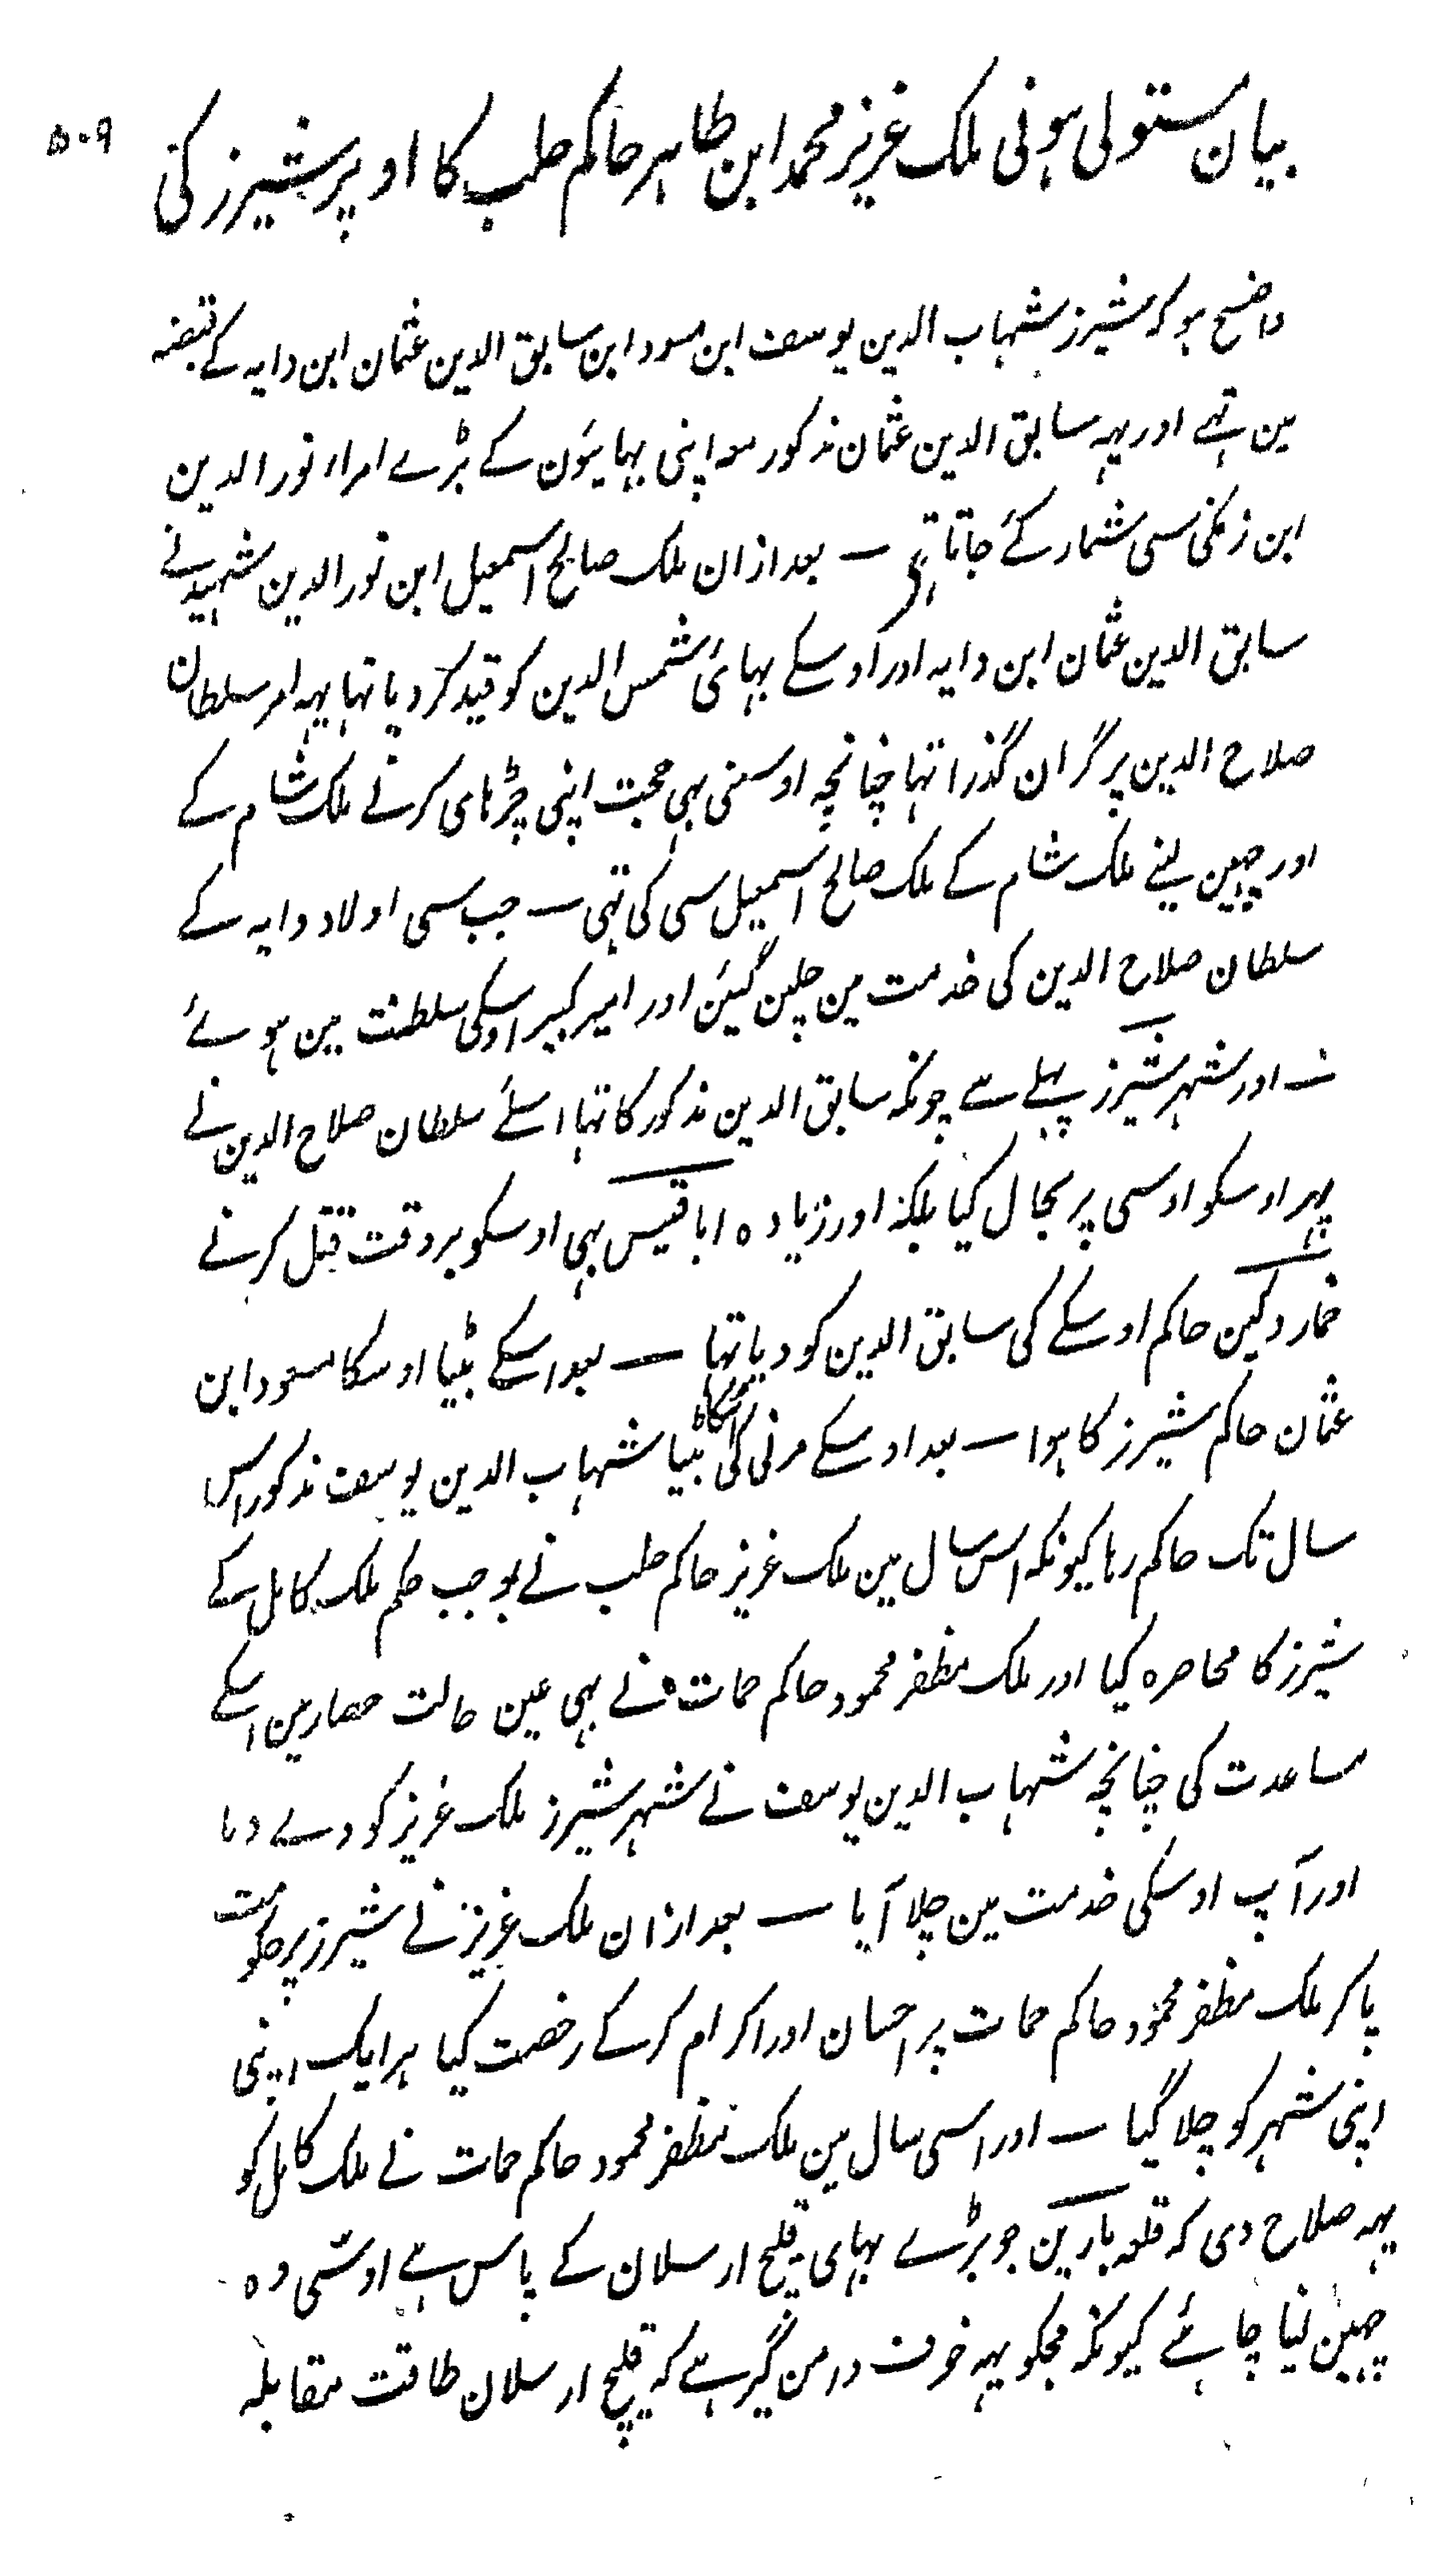 ۵۰۹
بیان مستولی ہونی ملک عزیز محمد ابن طاہر حاکم حلب کا اوپر شیرز کی
واضح ہو کہ شیرز شہاب الدین یوسف ابن مسعود ابن سابق الدین عثمان ابن دایہ کے قبضہ
مین تہے اور یہہ سابق الدین عثمان مذکور معہ اپنی بہایئون کے بڑے امراء نور الدین
ابن زنگی سی شمار کئے جاتا تہی — بعد ازان ملک صالح اسمعیل ابن نور الدین شہید نے
سابق الدین عثمان ابن دایہ اور اوسکے بہائی شمس الدین کو قید کر دیا تہا یہہ امر سلطان
صلاح الدین پر گران گذرا تہا چنانچہ اوسنی بہی حجت اپنی چڑہای کرنے ملک شام کے
اور چہین لینے ملک شام کے ملک صالح اسمعیل سی کی تہی — جب سی اولاد دایہ کے
سلطان صلاح الدین کی خدمت مین چلین گیئن اور امیر کبیر اوسکی سلطنت مین ہوئے
— اور شہر شیرز پہلے سے چونکہ سابق الدین مذکور کا تہا اسلئے سلطان صلاح الدین نے
پہر اوسکو اوسی پر بحال کیا بلکہ اور زیادہ ابا قبیس بہی اوسکو بروقت قتل کرنے
خمار دکین حاکم اوسکے کی سابق الدین کو دیا تہا — بعد اسکے بیٹا اوسکا مسعود ابن
عثمان حاکم شیرز کا ہوا — بعد اوسکے مرنی کی اسکا بیٹا شہاب الدین یوسف مذکور اس
سال تک حاکم رہا کیونکہ اس سال مین ملک عزیز حاکم حلب نے بوجب حکم ملک کامل کے
شیرز کا محاصرہ کیا اور ملک مظفر محمود حاکم حمات نے بہی عین حالت حصار مین اسکے
مساعدت کی چنانچہ شہاب الدین یوسف نے شہر شیرز ملک عزیز کو دے دیا
اور آپ اوسکی خدمت مین چلا آیا — بعد ازان ملک عزیز نے شیرز پر حکومت
پا کر ملک مظفر محمود حاکم حمات پر احسان اور اکرام کر کے رخصت کیا ہر ایک اپنی
اپنی شہر کو چلا گیا — اور اسی سال مین ملک مظفر محمود حاکم حمات نے ملک کامل کو
یہہ صلاح دی کہ قلعہ بارین جو بڑے بہای قلیج ارسلان کے پاس ہے اوسی وہ
چہین لینا چاہئے کیونکہ مجکو یہہ خوف دامن گیر ہے کہ قلیج ارسلان طاقت مقابلہ